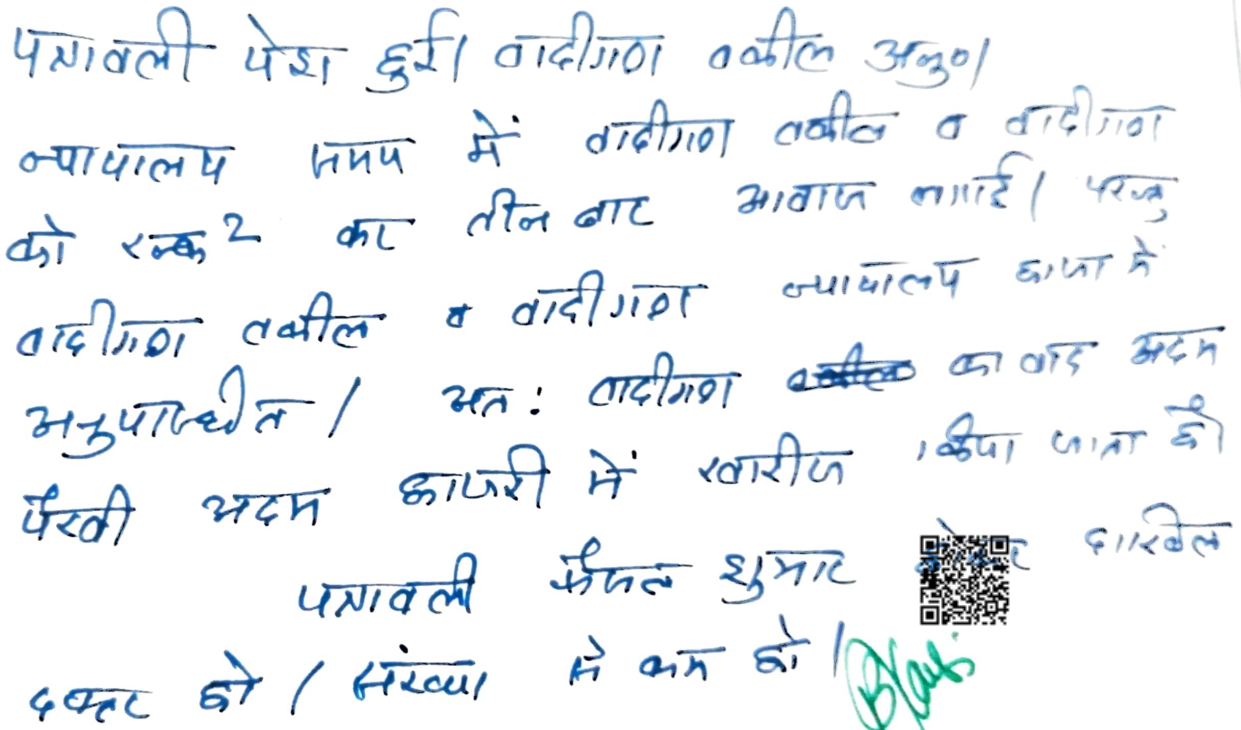 पत्रावली पेश हुई। वादीगण वकील अनु०।
न्यायालय समय में वादीगण वकील व वादीगण
को रूक 2 कर तीन बार आवाज लगाई। परन्तु
वादीगण वकील व वादीगण न्यायालय हाजा में
अनुपस्थीत। अतः वादीगण का वाद अदम
पैरवी अदम हाजरी में खारीज किया जाता है।
पत्रावली फैसल शुमार दाखिल
दफ्तर हो। संख्या से कम हो।